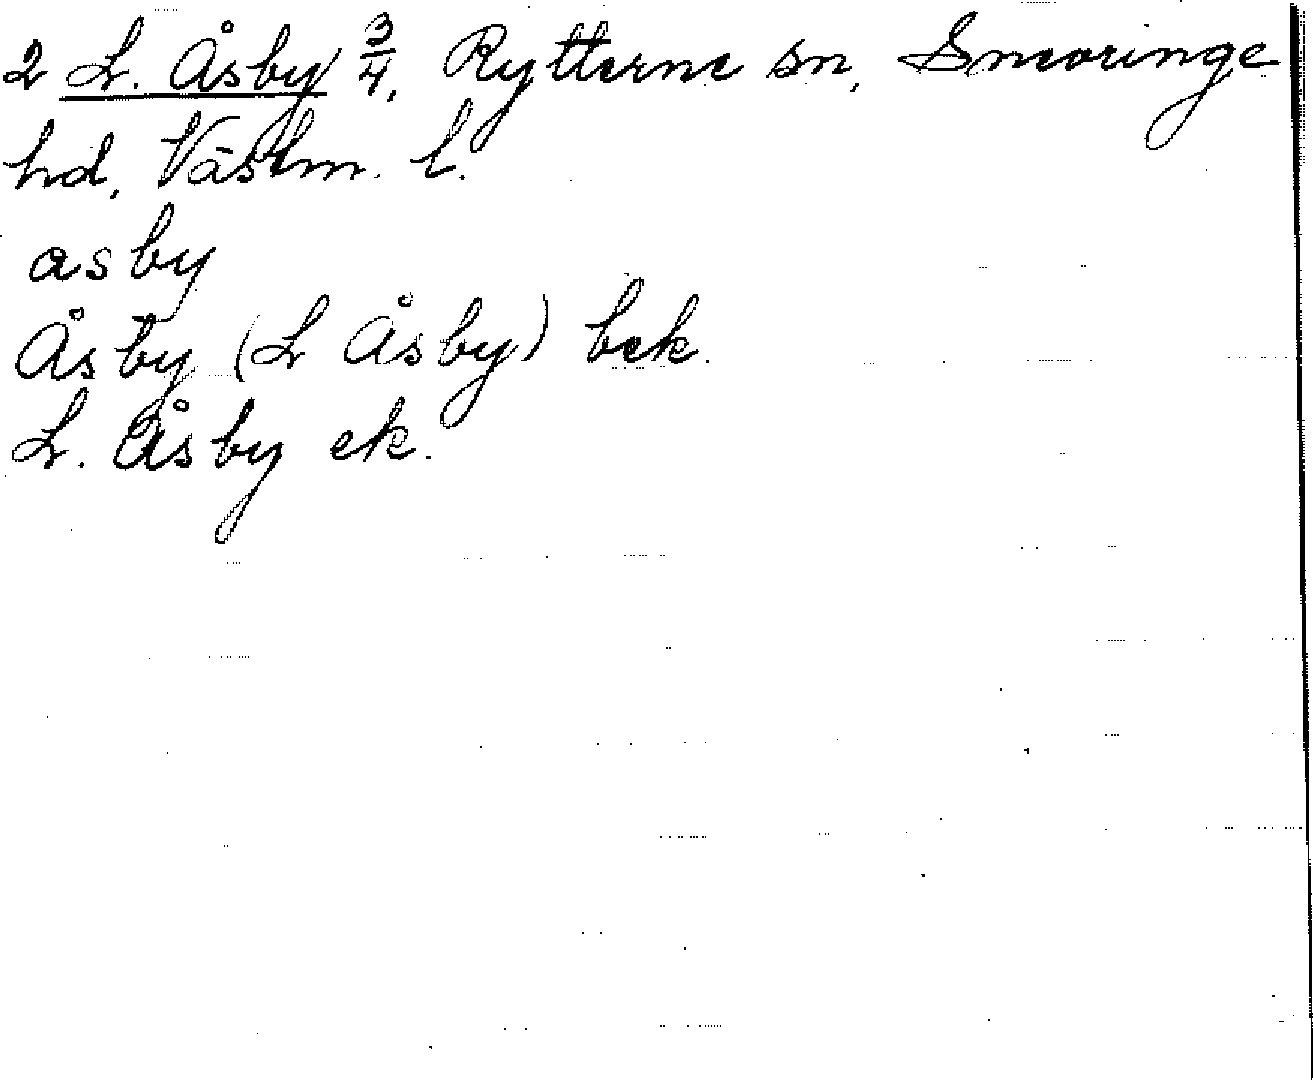 2 L. Åsby 3/4, Rytterne sn, Snevringe
hd, Västm. l.
asby
Åsby (L Åsby) bek.
L. Åsby ek.